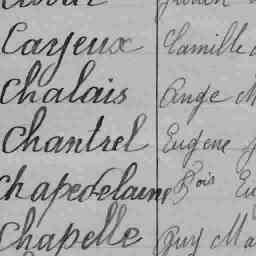 Cayeux Camille
Chalais Ange M
Chantrel Eugene
Chapedelaine Fois Eu
Chapelle Guy Ma